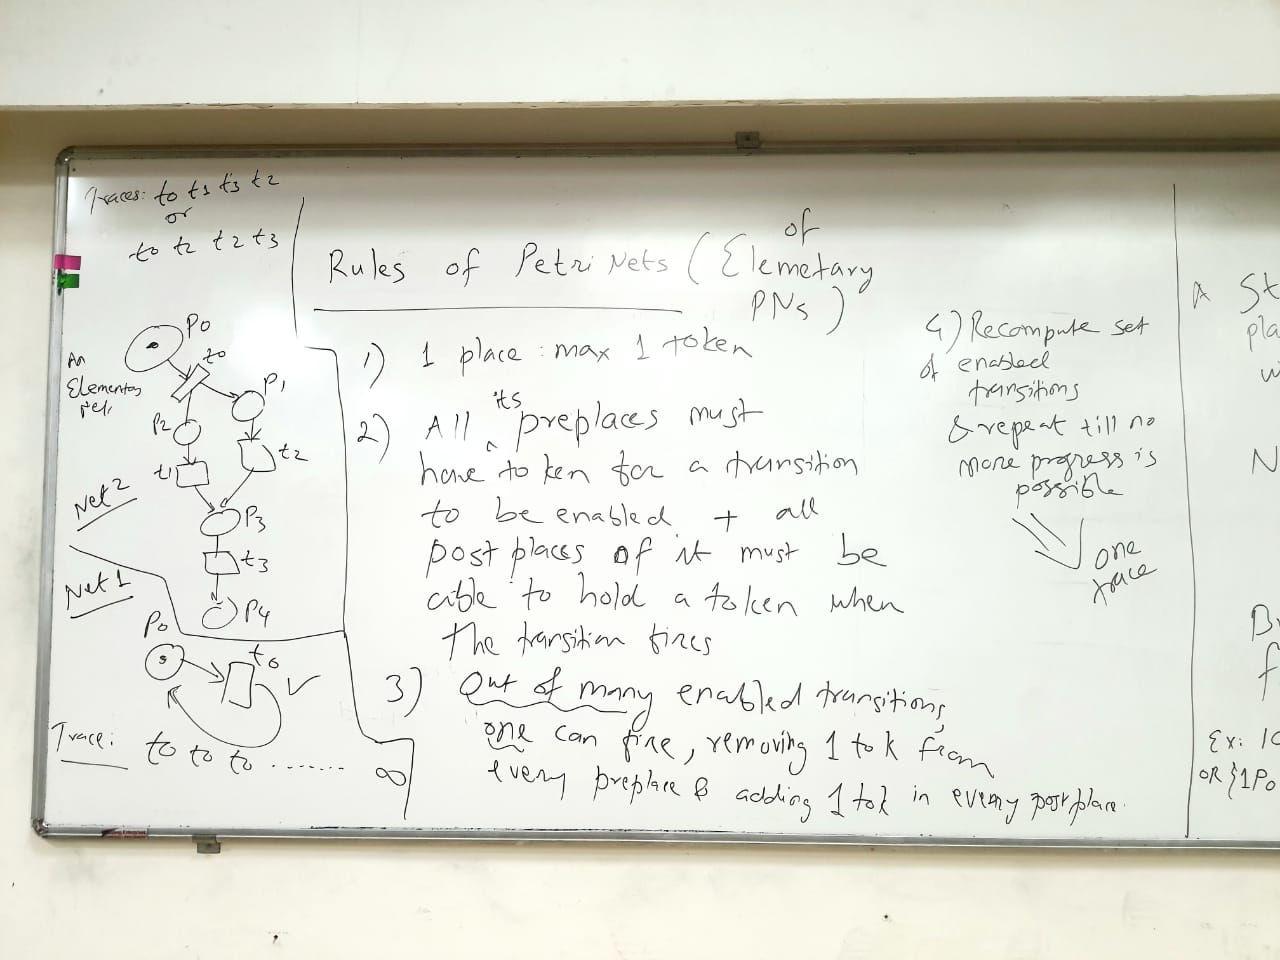 Traces: to t1 t3 t2
or
to t2 t2 t3
P0
to
An
Elementary
net.
P1
P2
t2
t1
Net 2
P3
t3
P4
Net 1
Po
to
Trace:
to to to ....... ∞
Rules of Petri Nets ( of Elemetary
PNs )
1) 1 place : max 1 token
2) All its preplaces must
have token for a transition
to be enabled + all
post places of it must be
able to hold a token when
the transition fires
3) Out of many enabled transitions,
one can fire, removing 1 tok from
every preplace & adding 1 tok in every postplace.
4) Recompute set
of enabled
transitions
& repeat till no
more progress is
possible
one
trace
A St
pla
w
N
B
f
Ex: 10
OR {1Po